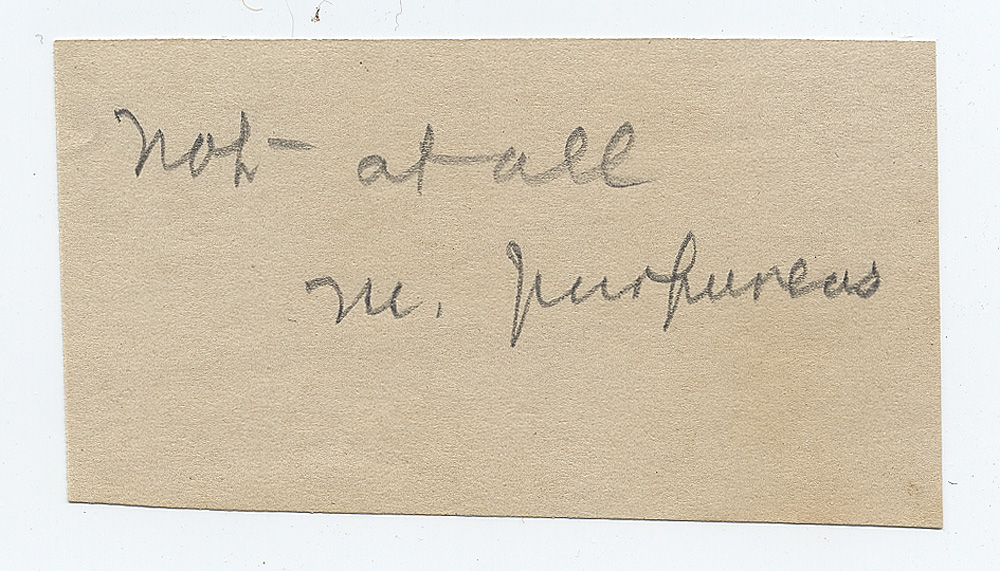 Not at all
M. purpureus